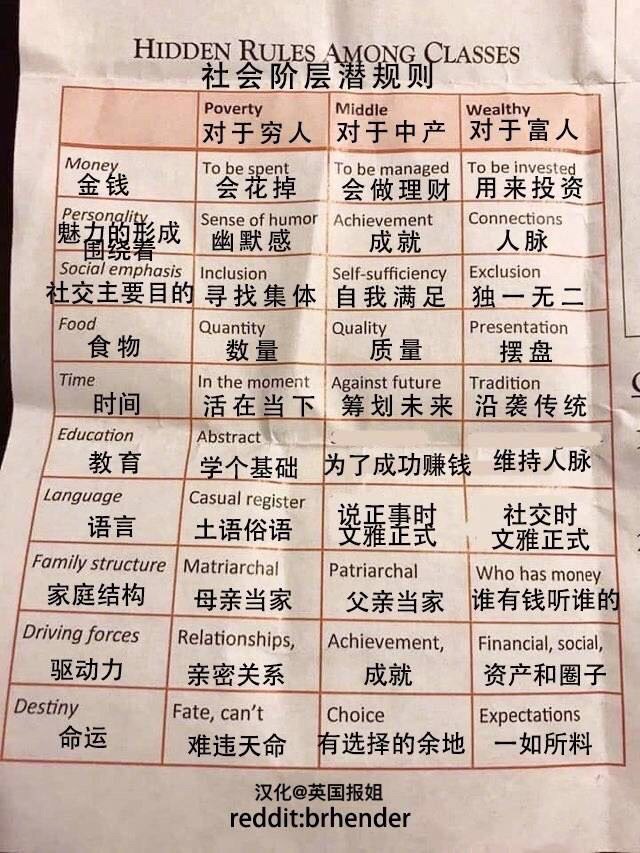 HIDDEN RULES AMONG CLASSES
社会阶层潜规则
Poverty Middle Wealthy
对于穷人 对于中产 对于富人
Money To be spent To be managed To be invested
金钱 会花掉 会做理财 用来投资
Personality Sense of humor Achievement Connections
魅力的形成 幽默感 成就 人脉
围绕着
Social emphasis Inclusion Self-sufficiency Exclusion
社交主要目的 寻找集体 自我满足 独一无二
Food Quantity Quality Presentation
食物 数量 质量 摆盘
Time In the moment Against future Tradition
时间 活在当下 筹划未来 沿袭传统
Education Abstract
教育 学个基础 为了成功赚钱 维持人脉
Language Casual register
语言 土语俗语 说正事时 社交时
文雅正式 文雅正式
Family structure Matriarchal Patriarchal Who has money
家庭结构 母亲当家 父亲当家 谁有钱听谁的
Driving forces Relationships, Achievement, Financial, social,
驱动力 亲密关系 成就 资产和圈子
Destiny Fate, can't Choice Expectations
命运 难违天命 有选择的余地 一如所料
汉化@英国报姐
reddit:brhender